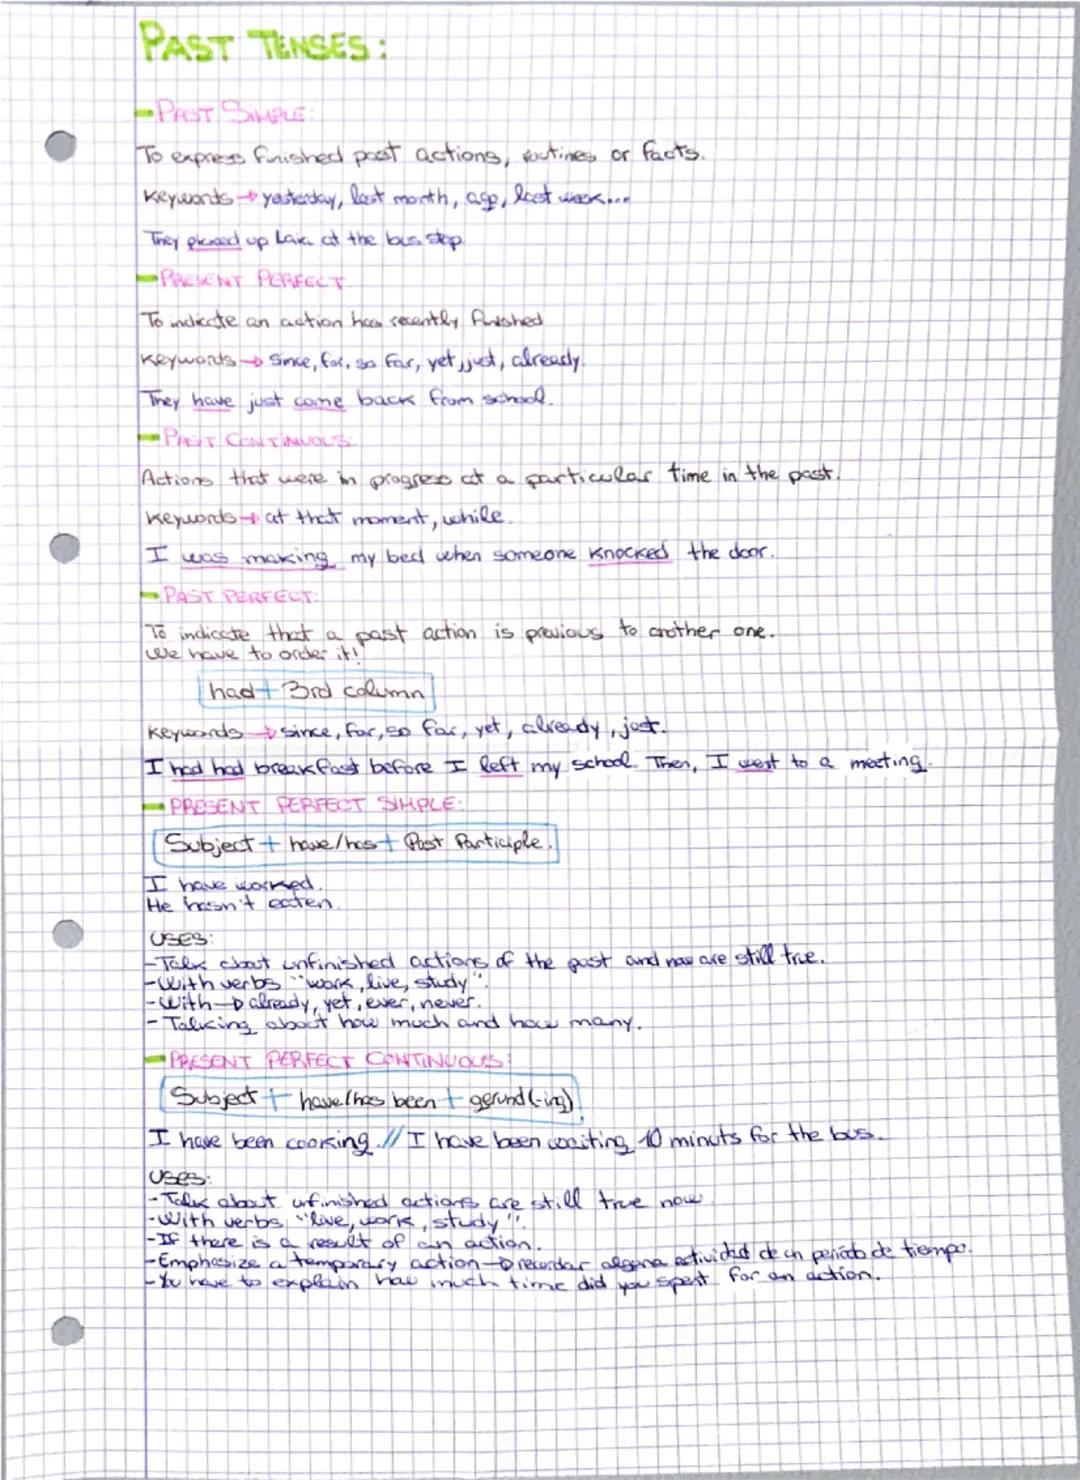 PAST TENSES:
- PAST SIMPLE:
To express finished past actions, routines or facts.
Keywords → yesterday, last month, ago, last week...
They picked up at the bus stop
- PRESENT PERFECT
To indicate an action has recently finished
Keywords → since, for, so far, yet, just, already.
They have just come back from school.
- PAST CONTINUOUS
Actions that were in progress at a particular time in the past.
Keywords → at that moment, while.
I was making my bed when someone knocked the door.
- PAST PERFECT:
To indicate that a past action is previous to another one.
We have to order it!
had + 3rd column
Keywords → since, for, so far, yet, already, just.
I had had breakfast before I left my school. Then, I went to a meeting.
- PRESENT PERFECT SIMPLE:
Subject + have/has + Past Participle.
I have worked.
He hasn't eaten.
USES:
- Talk about unfinished actions of the past and now are still true.
- With verbs "work, live, study".
- With → already, yet, ever, never.
- Talking about how much and how many.
- PRESENT PERFECT CONTINUOUS:
Subject + have/has been + gerund (-ing).
I have been cooking. // I have been waiting 10 minuts for the bus.
USES:
- Talk about unfinished actions are still true now
- With verbs "live, work, study".
- If there is a result of an action.
- Emphasize a temporary action → recordar alguna actividad de un periodo de tiempo.
- You have to explain how much time did you spent for an action.